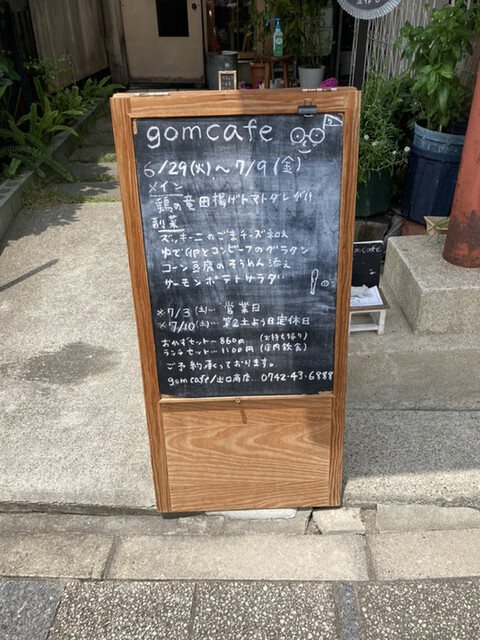 gomcafe
6/29(火)～7/9(金)
メイン
鶏の竜田揚げトマトダレがけ
副菜
ズッキーニのごまチーズ和え
ゆで卵とコンビーフのグラタン
コーン豆腐のそうめん添え
サーモンポテトサラダ
※7/3(土)… 営業日
※7/10(土)… 第2土よう日定休日
おかずセット…860円 (お持ち帰り)
ランチセット…1100円 (店内飲食)
ご予約承っております。
gomcafe/出口商店…0742-43-6888